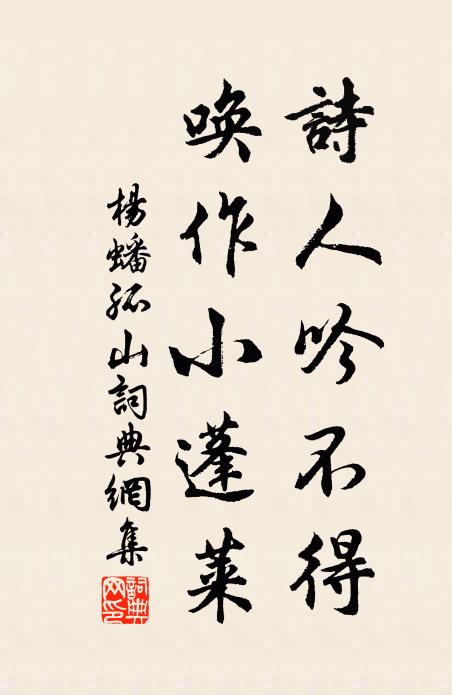 詩人吟不得
喚作小蓬萊
楊蟠孤山詞典網集
詞典
网印